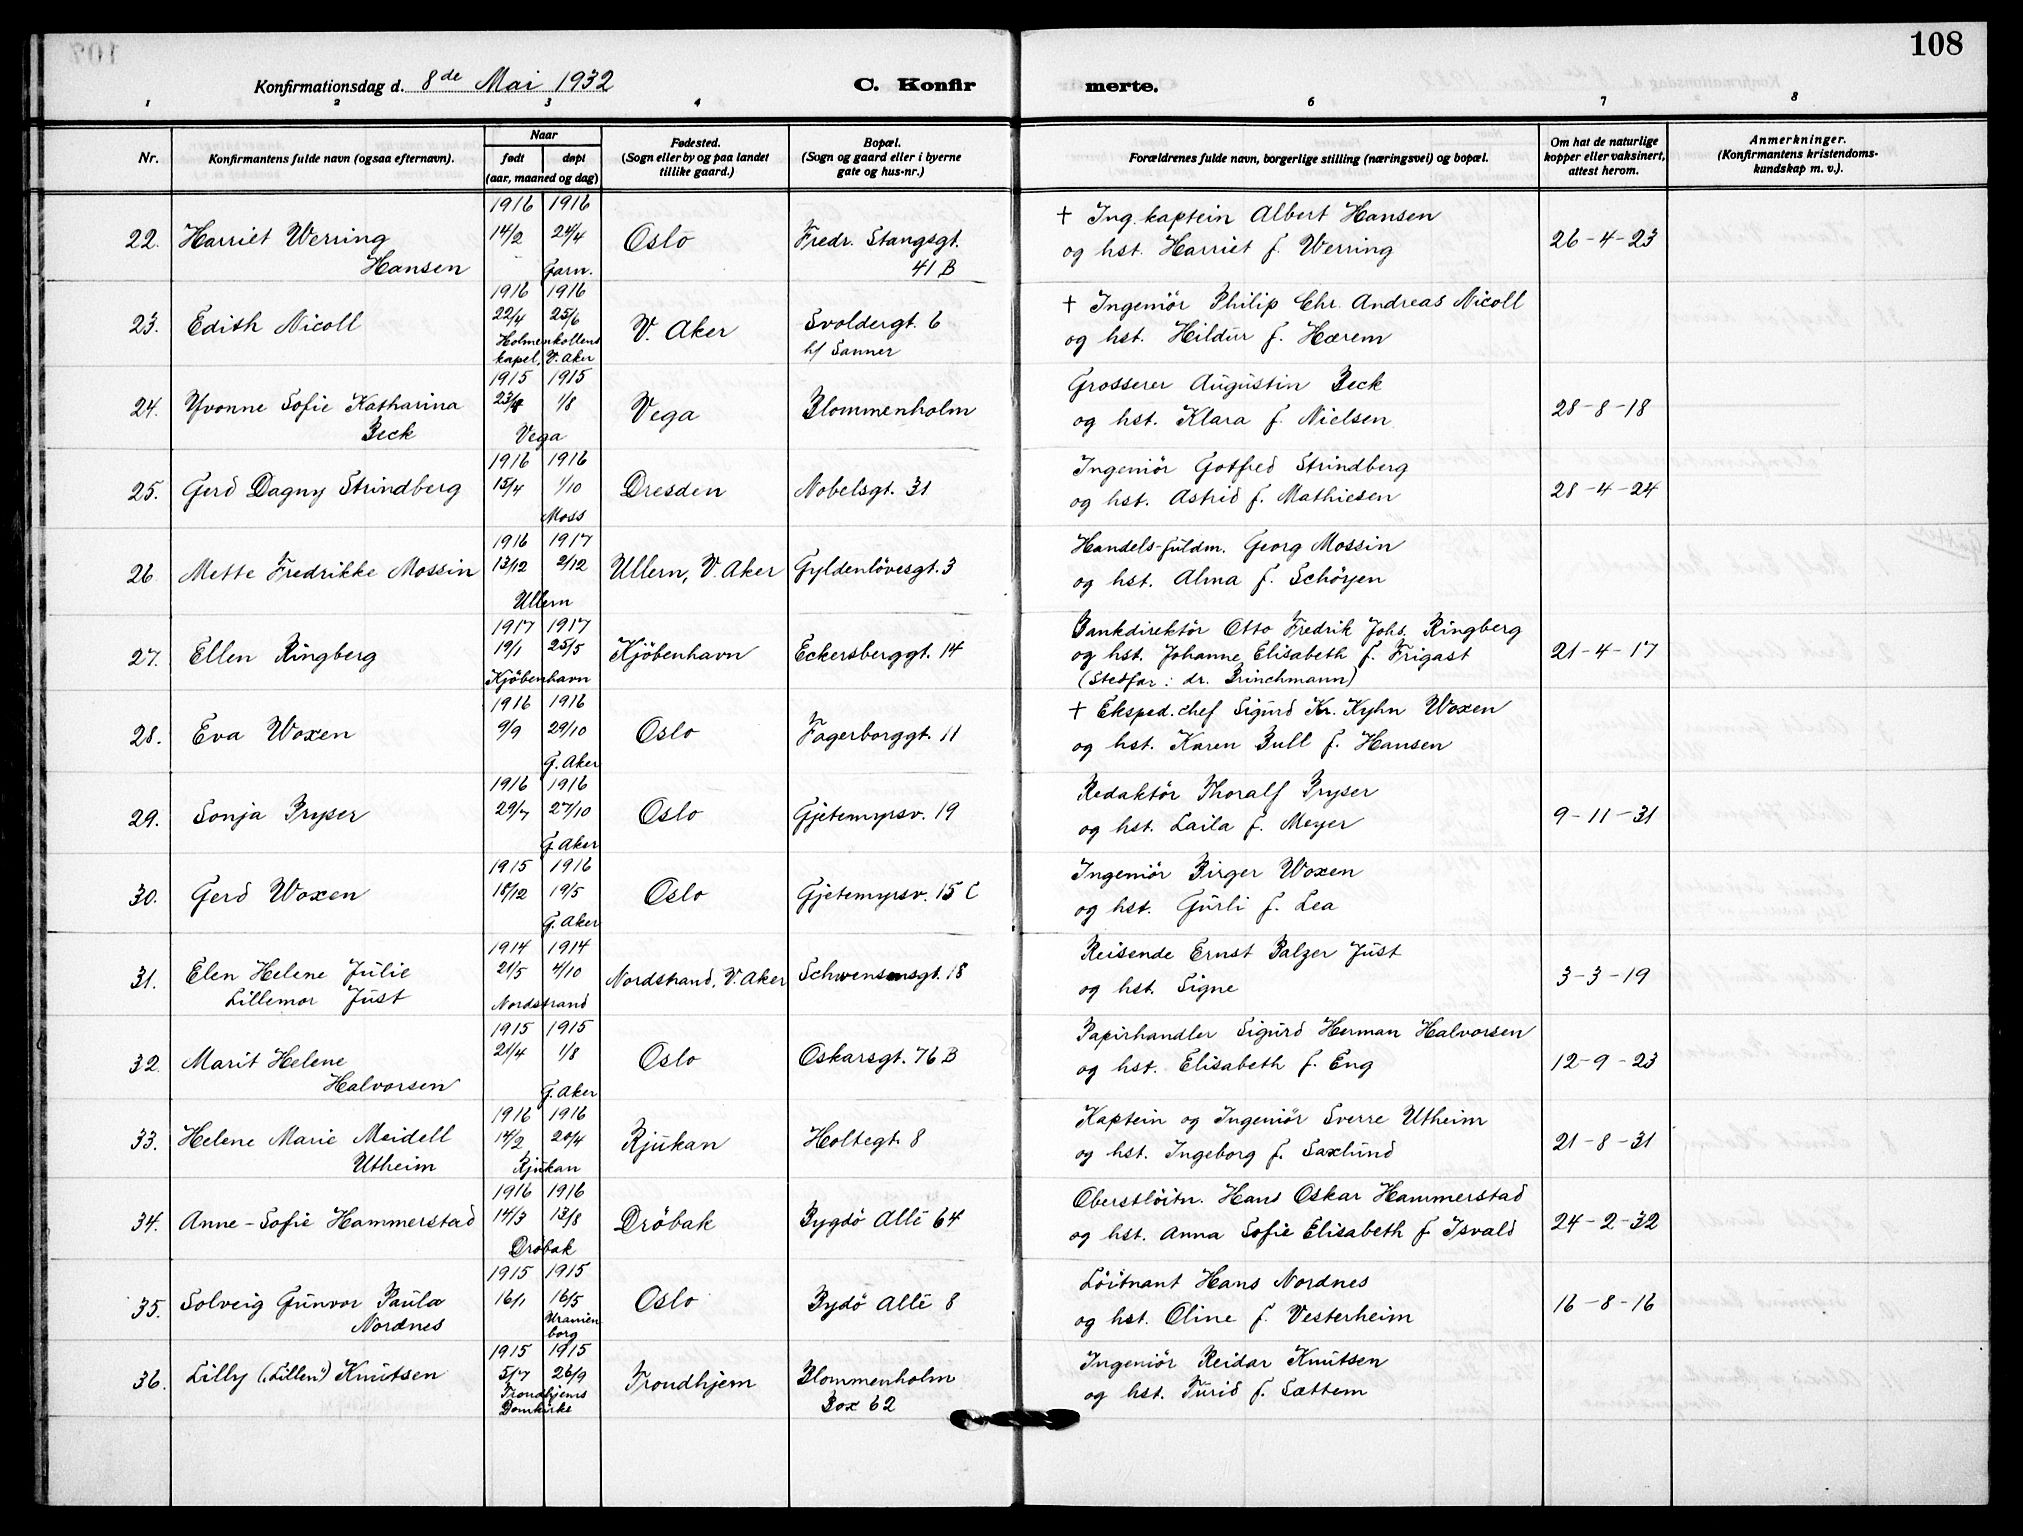 108
Konfirmationsdag d. 8de Mai 1932
C. Konfirmerte.
1 2 3 4 6 7 8
Nr.
Konfirmantens fulde navn (ogsaa efternavn).
Naar
født døpt
(aar, maaned og dag)
Fødested.
(Sogn eller by og paa landet
tillike gaard.)
Bopæl.
(Sogn og gaard eller i byerne
gate og hus-nr.)
Forældrenes fulde navn, borgerlige stilling (næringsvei) og bopæl.
Om hat de naturlige
kopper eller vaksinert,
attest herom.
Anmerkninger.
(Konfirmantens kristendoms-
kundskap m. v.).
22. Harriet Werring
Hansen
1916 1916
14/2 24/4
Garn.
Oslo
Fredr. Stangsgt.
41 B
† Ing. kaptein Albert Hansen
og hst. Harriet f. Werring
26-4-23
23. Edith Nicoll
1916 1916
22/4 25/6
Holmenkollens
kapel, V. Aker
V. Aker
Svoldergt. 6
h/ Sanner
† Ingeniör Philip Chr. Andreas Nicoll
og hst. Hildur f. Hærem
24. Yvonne Sofie Katharina
Beck
1915 1915
1/8
Vega
Vega
Blommenholm
Grosserer Augustin Beck
og hst. Klara f. Nielsen
28-8-18
25. Gerd Dagny Strindberg
1916 1916
15/4 1/10
Moss
Dresden
Nobelsgt. 31
Ingeniör Gotfred Strindberg
og hst. Astrid f. Mathiesen
28-4-24
26. Mette Fredrikke Mossin
1916 1917
13/12 2/12
Ullern
Ullern, V. Aker
Gyldenlövesgt. 3
Handels-fuldm. Georg Mossin
og hst. Alma f. Schöyen
27. Ellen Ringberg
1917 1917
19/1 25/5
Kjöbenhavn
Kjöbenhavn
Eckersberggt. 14
Bankdirektör Otto Fredrik Johs. Ringberg
og hst. Johanne Elisabeth f. Frigast
(Stedfar: dr. Brinchmann)
21-4-17
28. Eva Woxen
1916 1916
9/9 29/10
G. Aker
Oslo
Fagerborggt. 11
† Eksped.chef Sigurd Kr. Kyhn Woxen
og hst. Karen Bull f. Hansen
29. Sonja Pryser
1916 1916
29/7 27/10
G. Aker
Oslo
Gjetemyrsv. 19
Redaktör Thoralf Pryser
og hst. Laila f. Meyer
9-11-31
30. Gerd Woxen
1915 1916
18/12 19/5
G. Aker
Oslo
Gjetemyrsv. 15 C
Ingeniör Birger Woxen
og hst. Gurli f. Lea
31. Elen Helene Julie
Lillemor Just
1914 1914
21/5 4/10
Nordstrand
Nordstrand, V. Aker
Schwensensgt. 18
Reisende Ernst Balzer Just
og hst. Signe
3-3-19
32. Marit Helene
Halvorsen
1915 1915
21/4 1/8
G. Aker
Oslo
Oskarsgt. 76 B
Papirhandler Sigurd Herman Halvorsen
og hst. Elisabeth f. Eng
12-9-23
33. Helene Marie Meidell
Utheim
1916 1916
14/2 20/4
Rjukan
Rjukan
Holtegt. 8
Kaptein og Ingeniör Sverre Utheim
og hst. Ingeborg f. Saxlund
21-8-31
34. Anne-Sofie Hammerstad
1916 1916
14/3 13/8
Dröbak
Dröbak
Bygdö Allé 64
Oberstlöitn. Hans Oskar Hammerstad
og hst. Anna Sofie Elisabeth f. Isvald
24-2-32
35. Solveig Gunvor Paula
Nordnes
1915 1915
16/1 16/5
Uranien
borg
Oslo
Bydö Allé 8
Löitnant Hans Nordnes
og hst. Oline f. Vesterheim
16-8-16
36. Lilly („Lillen") Knutsen
1915 1915
5/7 26/9
Trondhjems
Domkirke
Trondhjem
Blommenholm
Box 62
Ingeniör Reidar Knutsen
og hst. Turid f. Sættem